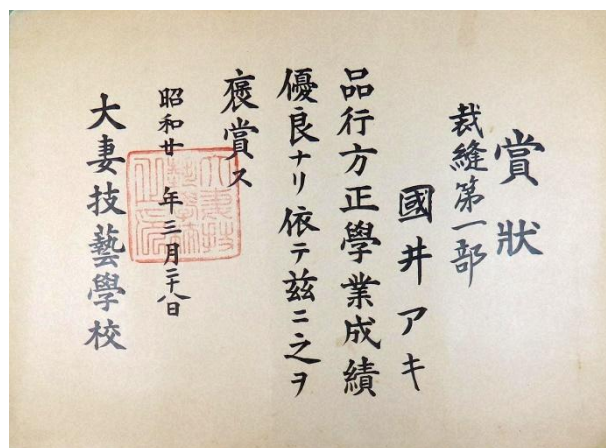 賞狀
裁縫第一部
國井アキ
品行方正學業成績
優良ナリ依テ茲ニ之ヲ
褒賞ス
昭和廿 年三月二十八日
大妻技藝學校